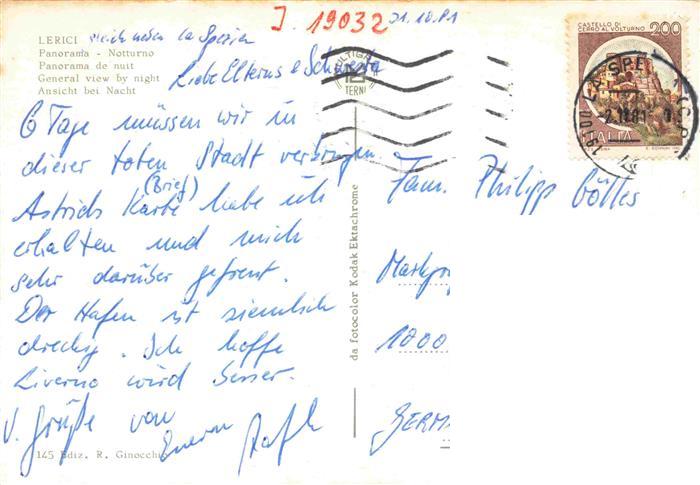 J. 19032 31.10.81
LERICI gleich neben La Spezia
Panorama - Notturno
Panorama de nuit
General view by night
Ansicht bei Nacht
Liebe Elterns & Schwester
6 Tage müssen wir in
dieser toten Stadt verbringen.
Astrids Karte (Brief) habe ich
erhalten und mich
sehr darüber gefreut.
Der Hafen ist ziemlich
dreckig. Ich hoffe
Liverno wird besser.
V. Grüße von
Eurem Ralf
145 Ediz. R. Ginocchio
da fotocolor Kodak Ektachrome
CASTELLO DI
CERRO AL VOLTURNO 200
ITALIA
TERNI
Fam. Philipp Göttes
1000
GERM